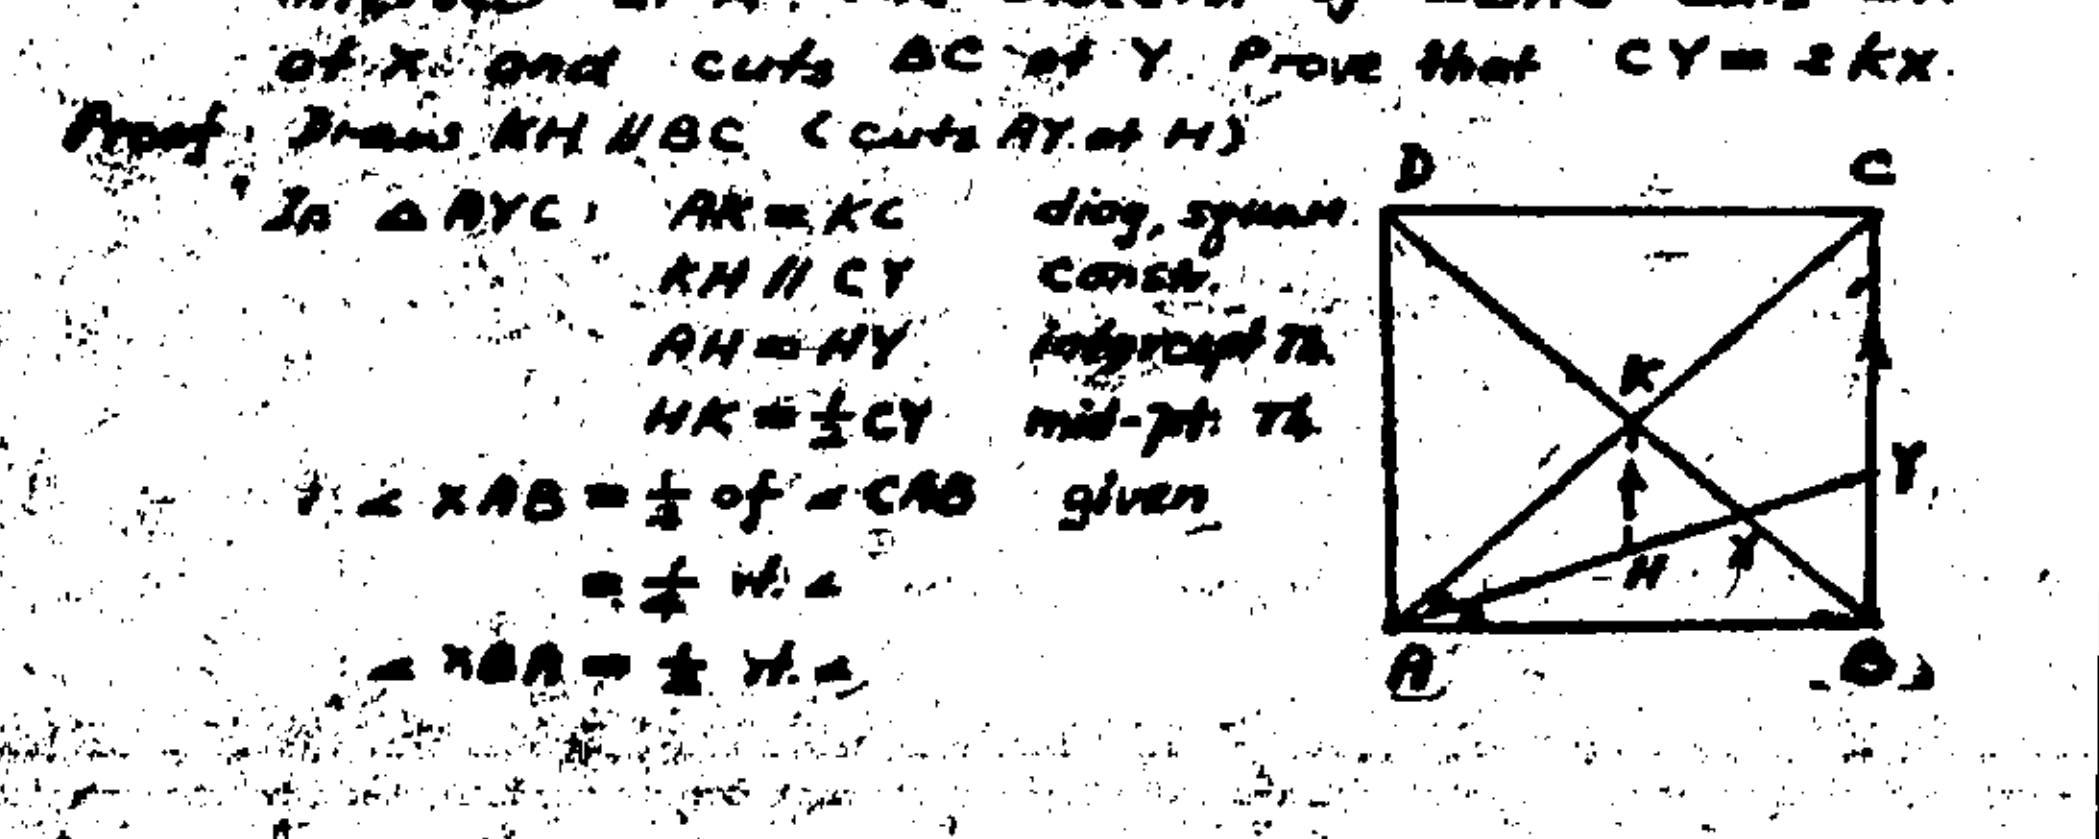 at X and cuts BC at Y. Prove that CY = 2KX.
Proof: Draw KH // BC (cuts AY at H)
In △ AYC, AK = KC diag, square.
KH // CY constr.
AH = HY intercept Th.
HK = ½ CY mid-pt. Th.
∠ XAB = ½ of ∠ CAB given
= ¼ rt. ∠
∠ XBA = ½ rt. ∠
D C
K
Y
H X
A B